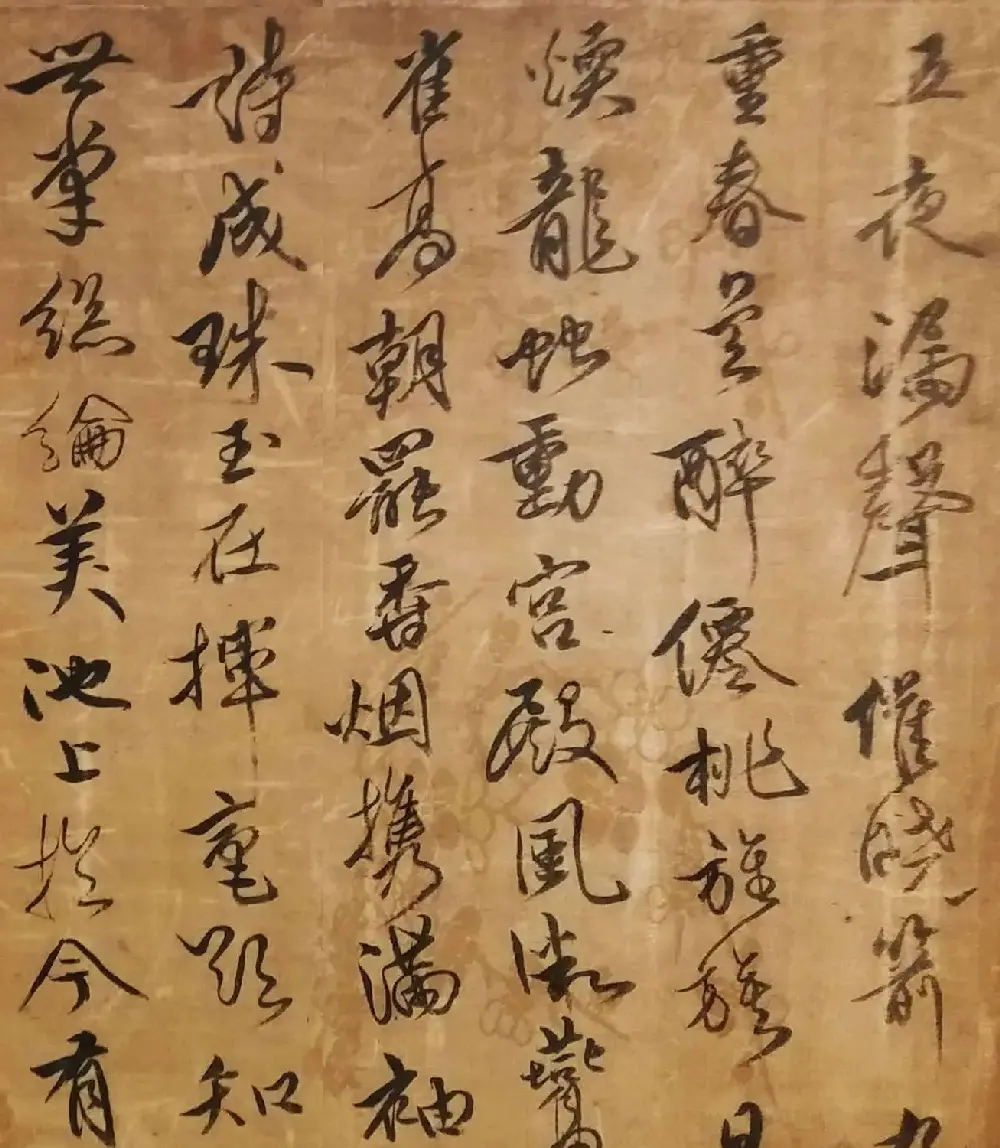 五夜漏聲催曉箭
重春色醉僊桃旌旗日
煖龍虵動宮殿風微
雀高朝罷香烟携滿袖
詩成珠玉在揮毫欲知
世掌絲綸美池上於今有